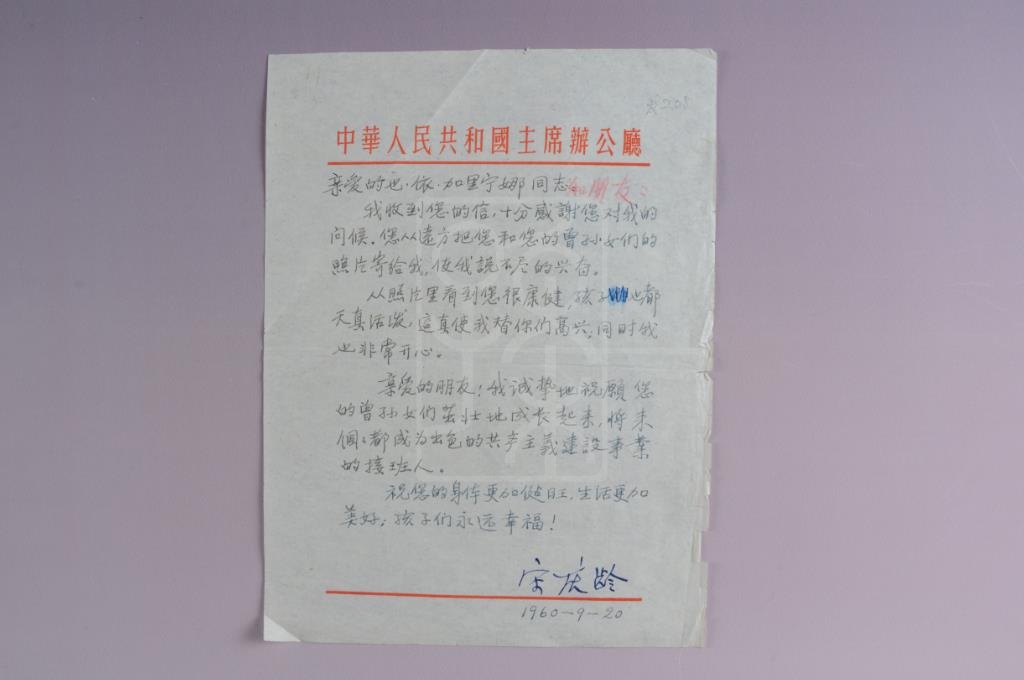 戈205
中華人民共和國主席辦公廳
亲爱的也·依·加里宁娜同志和朋友：
我收到您的信，十分感謝您对我的
问候。您从遠方把您和您的曾孙女们的
照片寄给我，使我説不尽的兴奋。
从照片里看到您很康健，孩子们也都
天真活泼，這真使我替你們高兴，同时我
也非常开心。
亲爱的朋友！我诚摯地祝願您
的曾孙女们茁壮地成长起来，将来
個々都成为出色的共产主義建設事業
的接班人。
祝您的身体更加健旺，生活更加
美好；孩子们永远幸福！
宋庆龄
1960-9-20